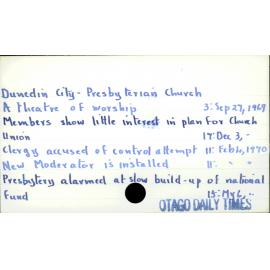 Dunedin City - Presbyterian Church
A theatre of worship 3: Sep 27, 1969
Members show little interest in plan for Church
Union 17: Dec 3, -
Clergy accused of control attempt 11: Feb 4, 1970
New Moderator is installed 11: " "
Presbytery alarmed at slow build-up of national
Fund 15: My 6, "
OTAGO DAILY TIMES